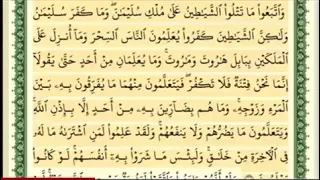 وَٱتَّبَعُوا۟ مَا تَتْلُوا۟ ٱلشَّيَـٰطِينُ عَلَىٰ مُلْكِ سُلَيْمَـٰنَ ۖ وَمَا كَفَرَ سُلَيْمَـٰنُ
وَلَـٰكِنَّ ٱلشَّيَـٰطِينَ كَفَرُوا۟ يُعَلِّمُونَ ٱلنَّاسَ ٱلسِّحْرَ وَمَآ أُنزِلَ عَلَى
ٱلْمَلَكَيْنِ بِبَابِلَ هَـٰرُوتَ وَمَـٰرُوتَ ۚ وَمَا يُعَلِّمَانِ مِنْ أَحَدٍ حَتَّىٰ يَقُولَآ
إِنَّمَا نَحْنُ فِتْنَةٌ فَلَا تَكْفُرْ ۖ فَيَتَعَلَّمُونَ مِنْهُمَا مَا يُفَرِّقُونَ بِهِۦ بَيْنَ
ٱلْمَرْءِ وَزَوْجِهِۦ ۚ وَمَا هُم بِضَآرِّينَ بِهِۦ مِنْ أَحَدٍ إِلَّا بِإِذْنِ ٱللَّهِ ۚ
وَيَتَعَلَّمُونَ مَا يَضُرُّهُمْ وَلَا يَنفَعُهُمْ ۚ وَلَقَدْ عَلِمُوا۟ لَمَنِ ٱشْتَرَىٰهُ مَا لَهُۥ
فِى ٱلْـَٔاخِرَةِ مِنْ خَلَـٰقٍ ۚ وَلَبِئْسَ مَا شَرَوْا۟ بِهِۦٓ أَنفُسَهُمْ ۚ لَوْ كَانُوا۟